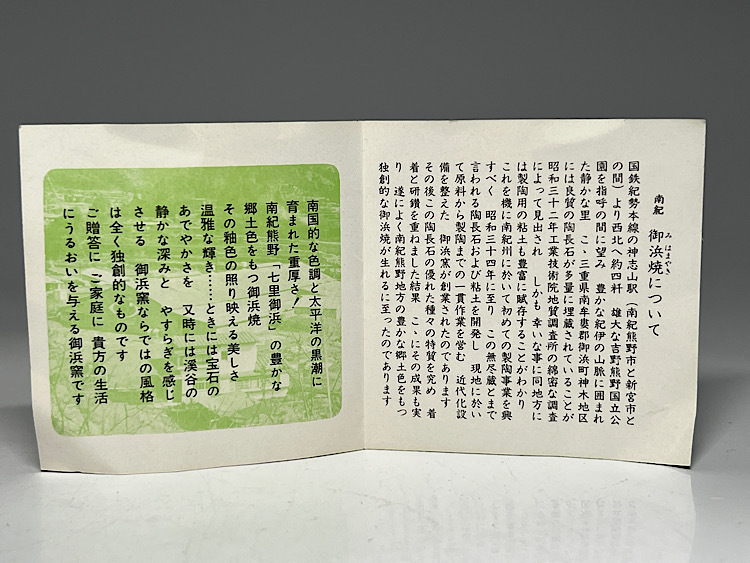 南紀 御浜焼について
みはまやき
国鉄紀勢本線の神志山駅(南紀熊野市と新宮市と
の間)より西北へ約四粁 雄大な吉野熊野国立公
園を指呼の間に望み 豊かな紀伊の山脈に囲まれ
た静かな里 こゝ三重県南牟婁郡御浜町神木地区
には良質の陶長石が多量に埋蔵されていることが
昭和三十二年工業技術院地質調査所の綿密な調査
によって見出され しかも 幸いな事に同地方に
は製陶用の粘土も豊富に賦存することがわかり
これを機に南紀州に於いて初めての製陶事業を興
すべく 昭和三十四年に至り この無尽蔵とまで
言われる陶長石および粘土を開発し 現地に於い
て原料から製陶までの一貫作業を営む 近代化設
備を整えた 御浜窯が創業されたのであります
その後この陶長石の優れた種々の特質を究め 着
着と研鑽を重ねました結果 こゝにその成果も実
り 遂によく南紀熊野地方の豊かな郷土色をもつ
独創的な御浜焼が生れるに至ったのであります
南国的な色調と太平洋の黒潮に
育まれた重厚さ!
南紀熊野「七里御浜」の豊かな
郷土色をもつ御浜焼
その釉色の照り映える美しさ
温雅な輝き……ときには宝石の
あでやかさを 又時には渓谷の
静かな深みと やすらぎを感じ
させる 御浜窯ならではの風格
は全く独創的なものです
ご贈答に ご家庭に 貴方の生活
にうるおいを与える御浜窯です